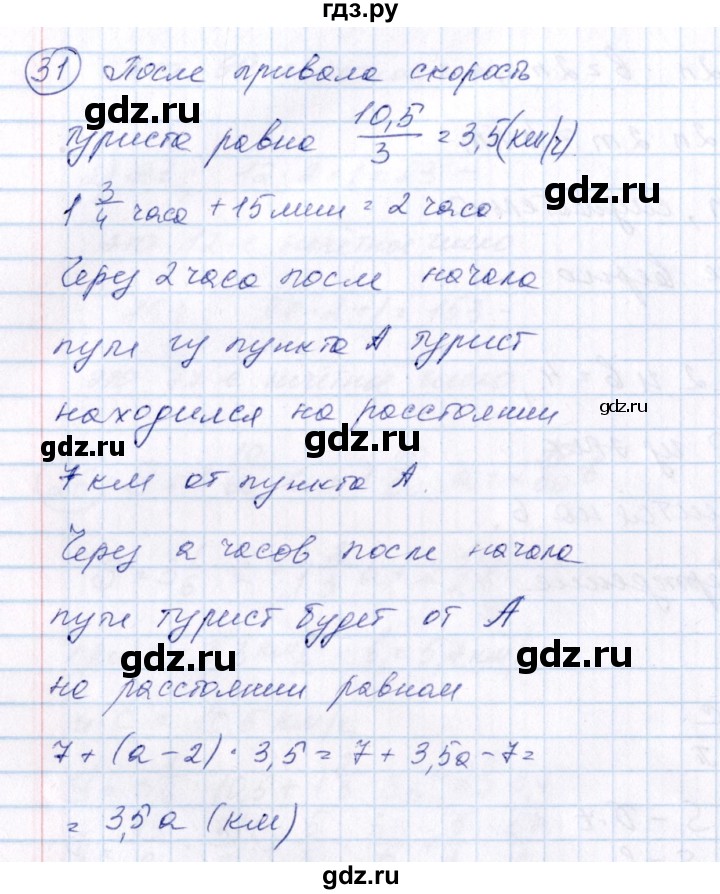 гдз.ру
31 После привала скорость
gdz.ru
туриста равна 10,5/3 = 3,5 (км/ч)
gdz.ru
1 3/4 часа + 15 мин = 2 часа
gdz.ru
Через 2 часа после начала
пути из пункта А турист
находился на расстоянии gdz.ru
gdz.ru gdz.ru
7 км от пункта А.
Через a часов после начала
пути турист будет от А
gdz.ru gdz.ru
на расстоянии равном
7 + (a - 2) · 3,5 = 7 + 3,5a - 7 =
= 3,5a (км)
gdz.ru